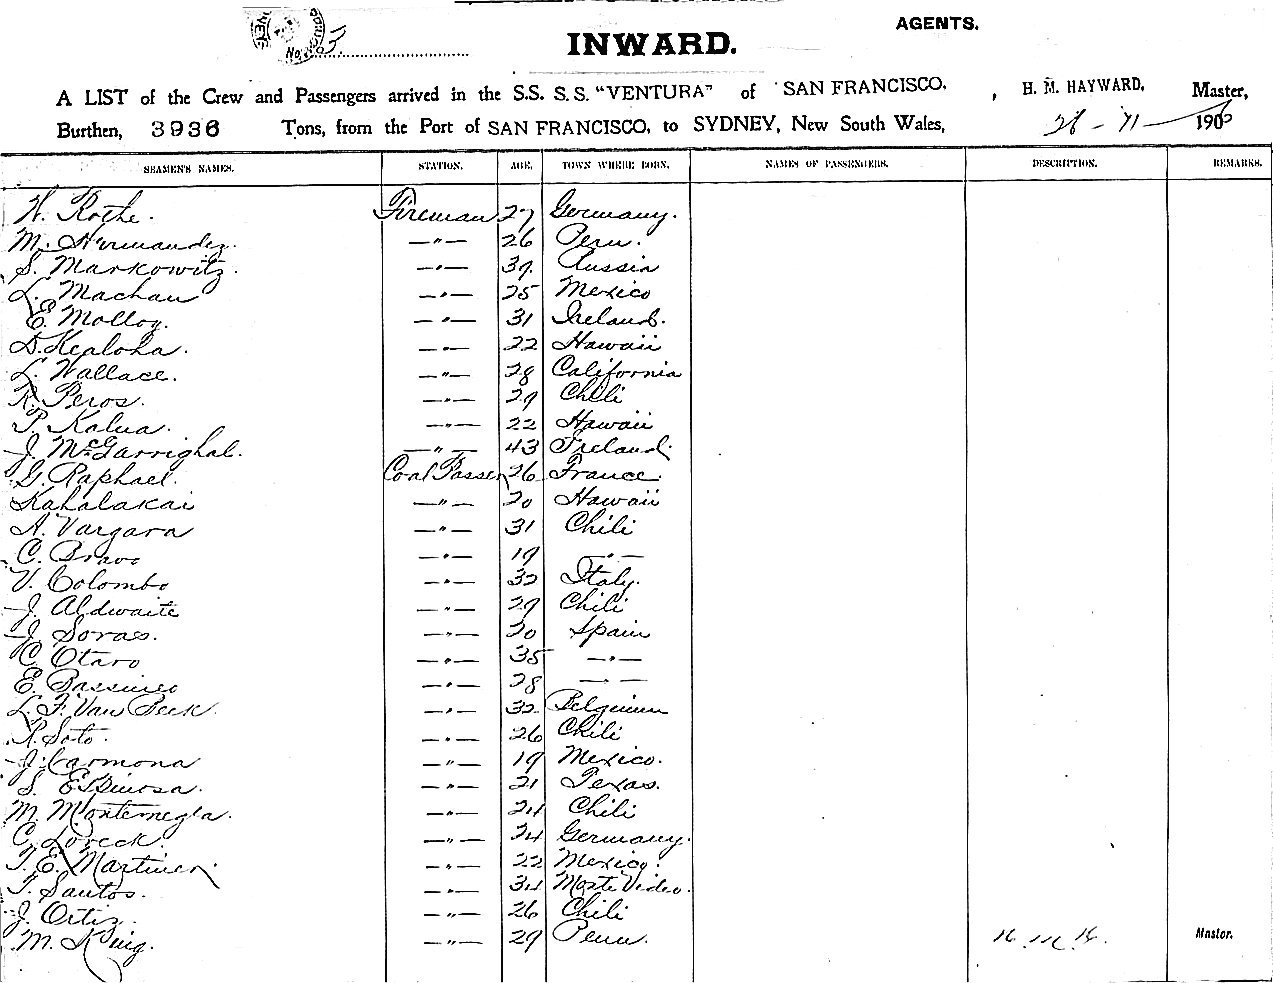 No. 3
AGENTS.
INWARD.
A LIST of the Crew and Passengers arrived in the S.S. S.S. "VENTURA" of SAN FRANCISCO. , H. M. HAYWARD, Master,
Burthen, 3936 Tons, from the Port of SAN FRANCISCO, to SYDNEY, New South Wales, 28 - 11 - 190
SEAMEN'S NAMES. STATION. AGE. TOWN WHERE BORN. NAMES OF PASSENGERS. DESCRIPTION. REMARKS.
H. Rothe. Fireman 27 Germany.
M. Hermandez. —"— 26 Peru.
S. Markowitz. —"— 39. Russia
L. Machau —"— 25 Mexico
E. Molloy. —"— 31 Ireland.
D. Kealoha. —"— 22 Hawaii
L. Wallace. —"— 28 California
R. Peros. —"— 29 Chili
P. Kalua. —"— 22 Hawaii
J. McGarrighal. —"— 43 Ireland.
G. Raphael. Coal Passer 26 France.
Kahalakai —"— 20 Hawaii
A. Vargara —"— 31 Chili
C. Bravo —"— 19 —"—
V. Colombo —"— 32 Italy.
J. Aldwaite —"— 29 Chili
J. Soras. —"— 20 Spain
C. Otaro —"— 35 —"—
E. —"— 28 —"—
L. F. Van Beek. —"— 32 Belgium
R. Soto. —"— 26 Chili
J. Carmona —"— 19 Mexico.
S. Espinosa. —"— 21 Texas.
M. Montenegla. —"— 24 Chili
C. Loreck. —"— 24 Germany.
T. E. Martinez. —"— 22 Mexico.
T. Santos. —"— 34 Monte Video.
J. Ortiz. —"— 26 Chili
M. —"— 29 Peru. H. M. H. Master.